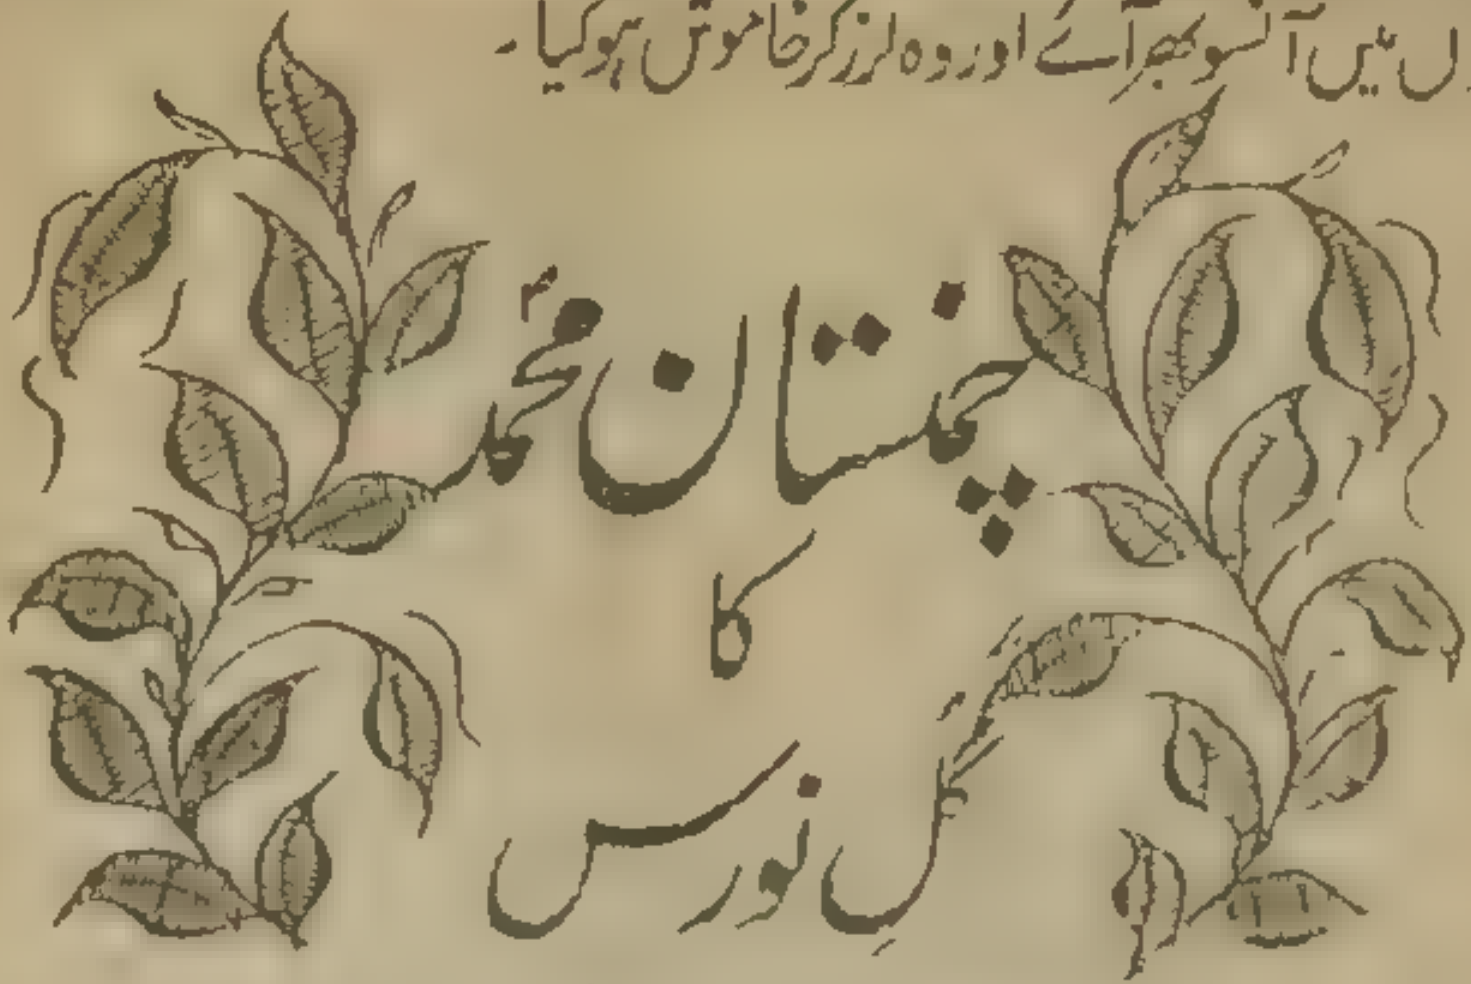 ں میں آنسو بھر آئے اور وہ لرز کر خاموش ہو گیا۔
چمنستان محمدؐ
کا
گلِ نورس